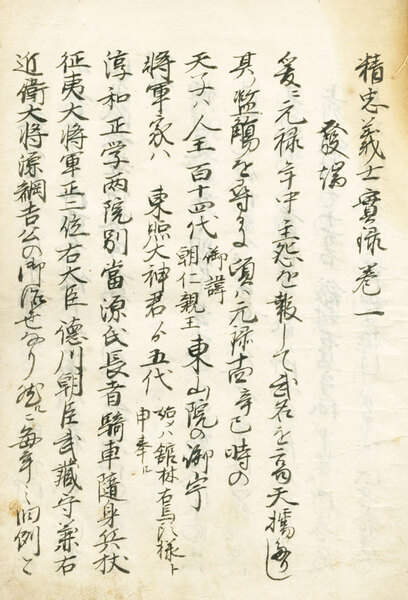 精忠義士實録巻一
發端
爰ニ元禄年中主怨を報して武名を高天擂
其ノ監觴を尋るに頃ハ元禄十四辛巳時の
天子ハ人王百十四代 御諱朝仁親王 東山院の御宇
将軍家ハ 東照大神君より五代 始ハ舘林右馬頭様ト申奉ル
淳和正学両院別當源氏長者騎車随身兵杖
征夷大将軍正二位右大臣徳川朝臣武蔵守兼右
近衛大将源綱吉公の御治世なり 然ニ毎年之旧例ニ